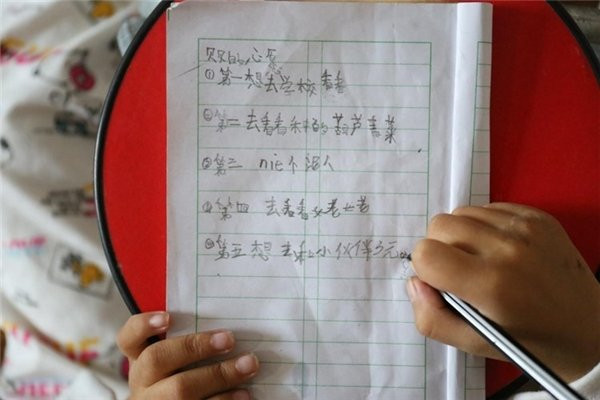 的心愿
①第一想去学校看看
②第二去看看 的葫芦青菜
③第三 nie个泥人
④第四 去看看 老
⑤第五想去和小伙伴多元